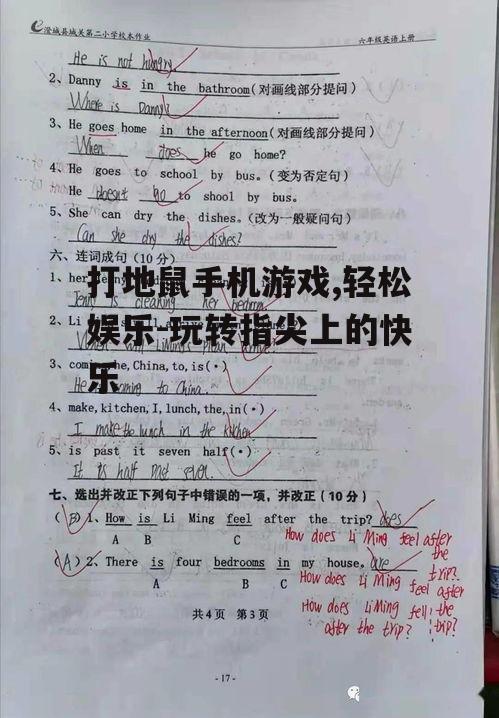 澄城县城关第二小学校本作业 六年级英语上册
He is not hungry
2、Danny is in the bathroom(对画线部分提问)
Where is Danny?
3、He goes home in the afternoon(对画线部分提问)
When does he go home?
4、He goes to school by bus.(变为否定句)
He doesn't go to shool by bus.
5、She can dry the dishes.(改为一般疑问句)
Can she dry the dishes?
六、连词成句(10分)
打地鼠手机游戏,轻松
娱乐-玩转指尖上的快
乐
1、her
Jenny is cleaning her bedroom.
2、Li
3、come,he,China,to,is(·)
coming to China.
4、make,kitchen,I,lunch,the,in(·)
I make the lunch in the kitchen
5、is past it seven half(·)
It is half past seven.
七、选出并改正下列句子中错误的一项，并改正(10分)
(B)1、How is Li Ming feel after the trip? does
A B C
How does Li Ming feel after the trip?
(A)2、There is four bedrooms in my house. are
A B C
How does Li Ming feel after the trip?
How does Li Ming fell
after the trip?
共4页 第3页
-17-